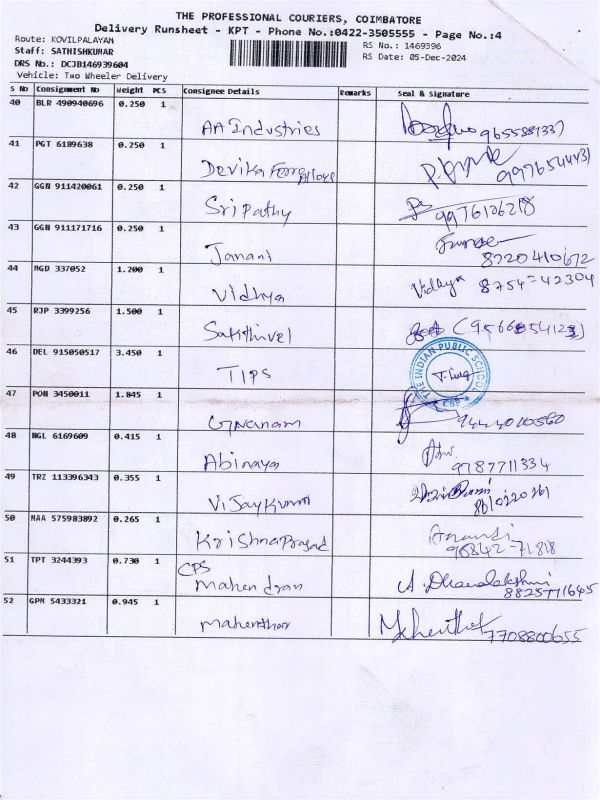 THE PROFESSIONAL COURIERS, COIMBATORE
Delivery Runsheet - KPT - Phone No.:0422-3505555 - Page No.:4
Route: KOVILPALAYAM
RS No.: 1469396
Staff: SATHISHKUMAR
RS Date: 05-Dec-2024
DRS No.: DCJB146939604
Vehicle: Two Wheeler Delivery
S No Consignment No Weight PCS Consignee Details Remarks Seal & Signature
40 BLR 490940696 0.250 1
AA Industries
41 PGT 6189638 0.250 1
Devika Ferro Alloys
42 GGN 911420061 0.250 1
Sripathy 9976126218
43 GGN 911171716 0.250 1
Janani 8220410672
44 MGD 337052 1.200 1
Vidhya Vidhya 8754-42304
45 RJP 3399256 1.500 1
Sakthivel
46 DEL 915050517 3.450 1
TIPS THE INDIAN PUBLIC SCHOOL CBE
47 PON 3450011 1.845 1
Gnanam 9444010560
48 NGL 6169609 0.415 1
Abinaya 9787711334
49 TRZ 113396343 0.355 1
Vijaykumar
50 MAA 575983892 0.265 1
KrishnaPrasad Anandi
95842-71818
51 TPT 3244393 0.730 1
CPS
Mahendran A. Dhanalakshmi
8825711645
52 GPM 5433321 0.945 1
Mahendhar 7708800655